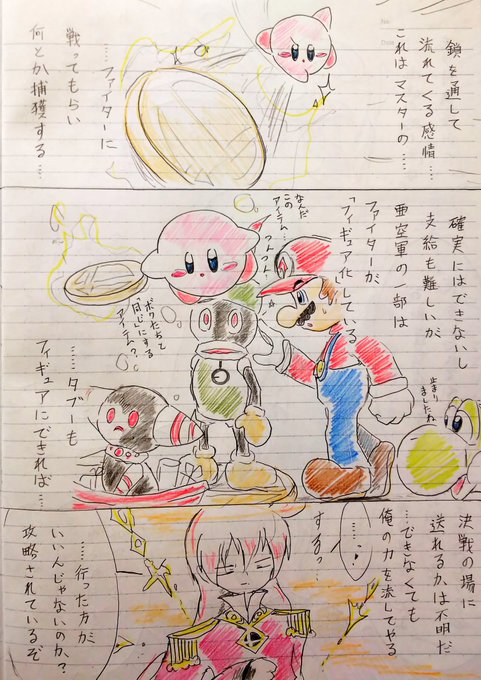 鎖を通して
流れてくる感情……
これは マスターの……
……ファイターに
戦ってもらい
何とか捕獲する…
確実にはできないし
支給も難しいが
亜空軍の一部は
ファイターが
「フィギュア化」している
なんだ
この
アイテム…
つんつん
ボクたちと
「同じ」にする
アイテム?
止まり
ましたね
……タブーも
フィギュアにできれば…
決戦の場に
送れるかは不明だ
…できなくても
俺の力を流してやる
……!
する?…
……行った方が
いいんじゃないのか?
攻略されているぞ